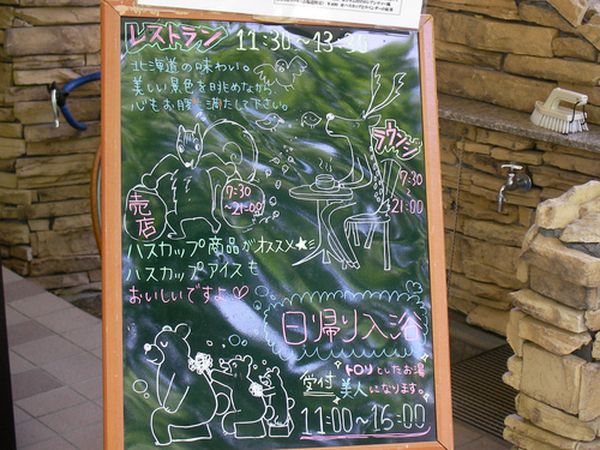 レストラン 11:30～13:30
北海道の味わい。
美しい景色を眺めながら
心もお腹も満たして下さい。
ラウンジ
7:30
～
21:00
売店
7:30
～21:00
ハスカップ商品がオススメ★
ハスカップアイスも
おいしいですよ♡
日帰り入浴
トロリとしたお湯
美人になります。
受付
11:00～16:00